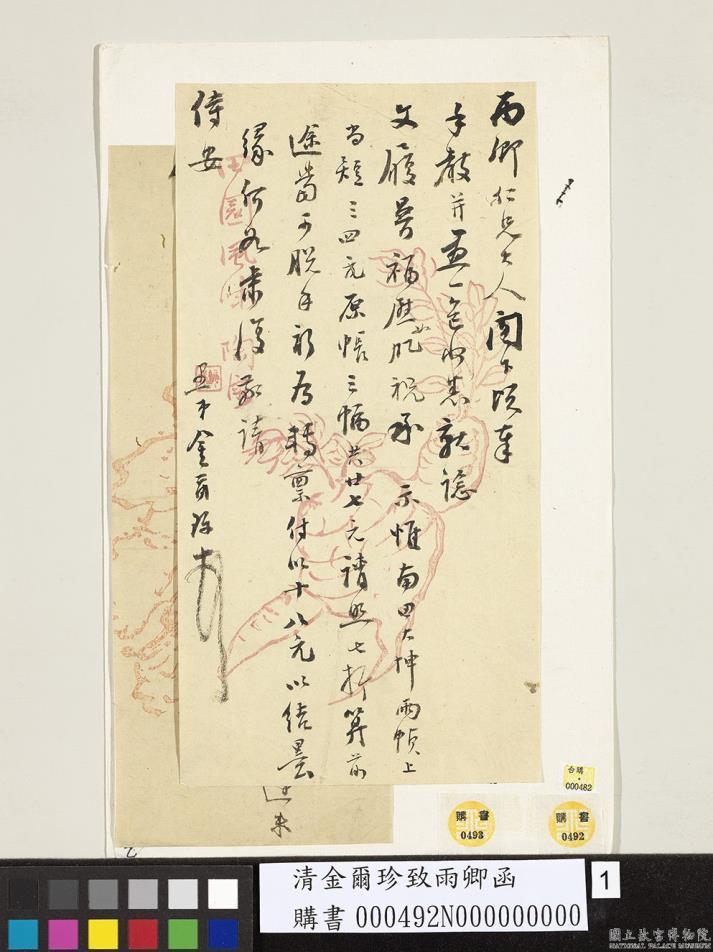 雨卿仁兄大人閣下頃奉
手教并画一包收悉就諗
文履曼福歷凡祝承
示惟南田大坤兩幀上
尚短三四元原帳三幅共廿七元請照七折算前
途當可脫手祈為轉稟付以十八元以結曇
緣何如肅復敬請
侍安
愚弟金爾珍
田園風味
進来
乙
台購
000482
購書
0493
購書
0492
清金爾珍致雨卿函
購書000492N000000000
1
國立故宮博物院
NATIONAL PALACE MUSEUM